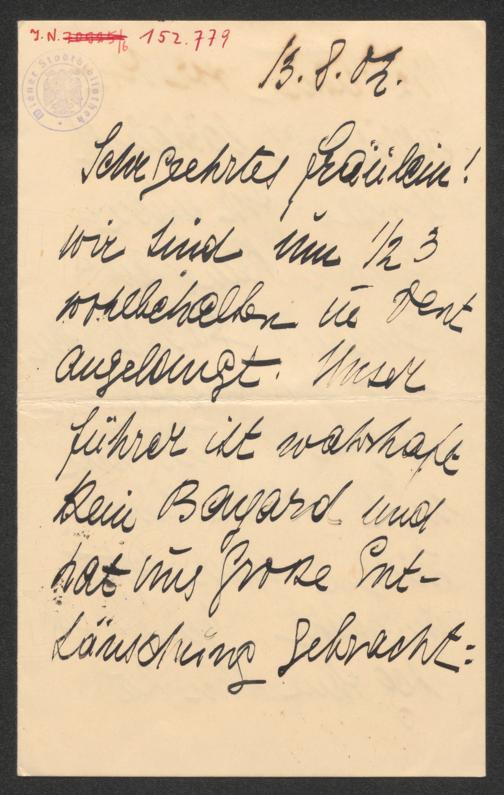 J.N. 152.779
Wiener Stadtbibliothek
13.8.02.
Sehr geehrtes Fräulein!
wir sind um 1/2 3
wohlbehalten in Vent
angelangt. Unser
Führer ist wahrhaft
kein Bayard und
hat uns große Ent-
täuschung gebracht: